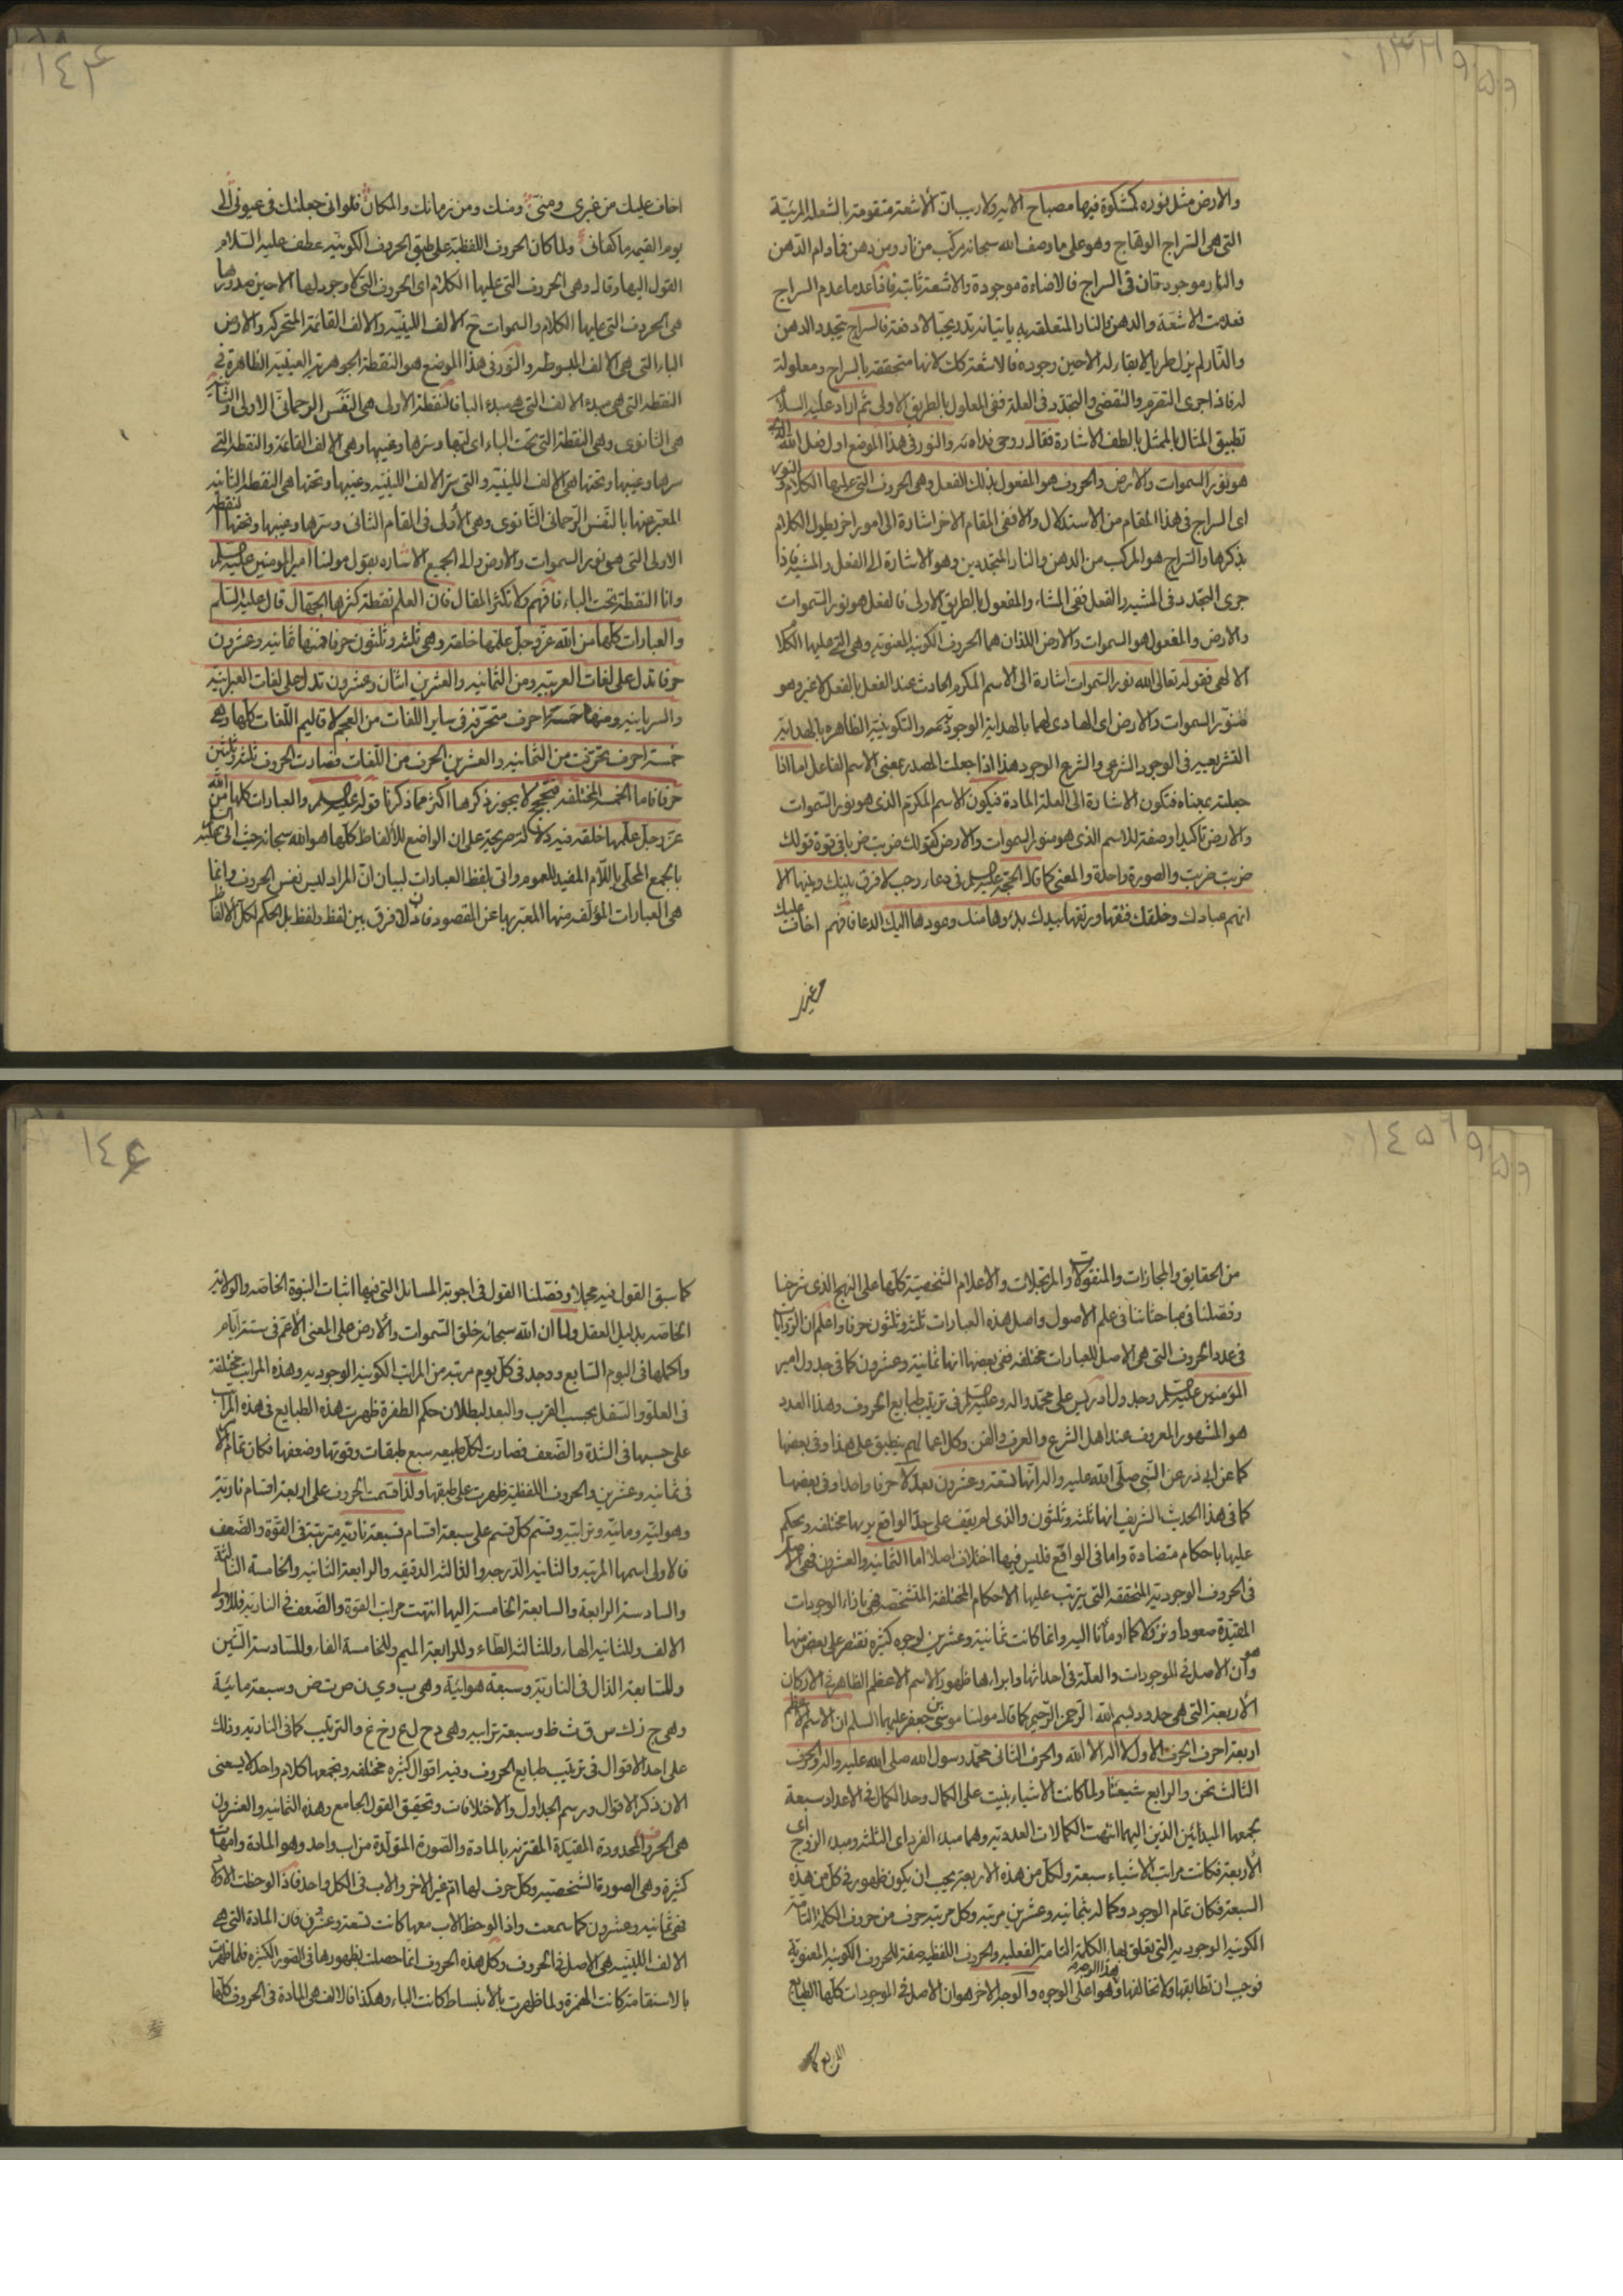 ١٣٢١
٩
٥
٩
والارض مثل نوره كمشكوة فيها مصباح الاية ولا ريب ان الاشعة متقومة بالشعلة المرئيّة
التى هى السّراج الوهّاج وهو على ما وصف الله سبحانه مركّب من نار ومن دهن فما دام الدّهن
والنار موجودتان فى السراج فالاضاءة موجودة والاشعة ثابتة فاذا عدما عدم السراج
فعدمت الاشعّة والدهن والنار المتعلقة به ياتيانه تدريجيّا لا دفعة فالسراج يتجدد الدهن
والنّار لم يزل طريا لا بقاء له الا حين وجوده فالاشعة كك لانها متحققة بالسراج ومعلولة
له فاذا جرى التقوم والنقضى والتجدّد فى العلة ففى المعلول بالطريق الاولى ثم اراد عليه السلام
تطبيق المثال بالممثل بالطف الاشارة فقال روحى فداه والنور فى هذا الموضع اول فعل الله الذى
هو نور السموات والارض والحروف هو المفعول بذلك الفعل وهى الحروف التى عليها الكلام والنور
اى السراج فى هذا المقام من الاستدلال والا ففى المقام الاخر اشارة الى امور اخر يطول الكلام
بذكرها والسراج هو المركب من الدهن والنار المتجددين وهو الاشارة الى الفعل والمشية فاذا
جرى التجدد فى المشية والفعل ففى المشاء والمفعول بالطريق الاولى فالفعل هو نور السموات
والارض والمفعول هو السموات والارض اللذان هما الحروف الكونية المعنوية وهى التى عليها الكلام
الالهى فقوله تعالى الله نور السموات اشارة الى الاسم المكرم الحادث عند الفعل بالفعل لا غير وهو
منور السموات والارض اى الهادى لهما بالهداية الوجودية والتكوينية الظاهرة بالهداية
التشريعية فى الوجود الشرعى والشرع الوجود هذا اذا جعلت المصدر بمعنى الاسم الفاعل اما اذا
جعلته بمعناه فتكون الاشارة الى العلة المادة فيكون الاسم المكرّم الذى هو نور السموات
والارض تاكيدا وصفة للاسم الذى هو منور السموات والارض كقولك ضربت ضربا فى قوة قولك
ضربت ضربت والصورة واحدة والمعنى كما قال الحجة عليه السلام فى دعاء رجب لا فرق بينك وبينها الا
انهم عبادك وخلقك فتقها ورتقها بيدك بدؤها منك وعودها اليك الدعا فافهم اخاف عليك
من غيرى
١٤٤
اخاف عليك من غيرى ومنى ومنك ومن زمانك والمكان فلو انى جعلتك فى عيونى الى
يوم القيمة ما كفانى ولما كان الحروف اللفظية على طبق الحروف الكونية عطف عليه السلام
القول اليها وقال وهى الحروف التى عليها الكلام اى الحروف التى لا وجود لها الا حين صدورها
هى الحروف التى عليها الكلام والسموات ح الالف اللينية والالف القائمة المتحركة والارض
الباء التى هى الالف المبسوطة والنور فى هذا الموضع هو النقطة الجوهرية العينية الظاهرة فى
النقطة التى هى مبدء الالف التى هى مبدء الباء فالنقطة الاولى هى النفس الرحمانى الاولى والثانية
هى الثانوى وهى النقطة التى تحت الباء اى تحتها وسرها وغيبها وهى الالف القائمة والنقطة التى
سرها وغيبها وتحتها هى الالف اللينية والتى سر الالف اللينية وغيبها وتحتها هى النقطة الثانية
المعبر عنها بالنفس الرحمانى الثانوى وهى الاولى فى المقام الثانى وسرها وغيبها وتحتها النقطة
الاولى التى هو نور السموات والارض والى الجميع الاشارة بقول مولينا امير المومنين عليه السلام
وانا النقطة تحت الباء فافهم ولا تكثر المقال فان العلم نقطة كثرها الجهال قال عليه السلم
والعبارات كلها من الله عزّ وجلّ علمها خلقه وهى ثلثة وثلثون حرفا فمنها ثمانية وعشرون
حرفا تدل على لغات العربية ومن الثمانية والعشرين اثنان وعشرون تدل على لغات العبرانية
والسريانية ومنها خمسة احرف متحرفة فى ساير اللغات من العجم لاقاليم اللغات كلها وهى
خمسة احرف تحرفت من الثمانية والعشرين الحرف من اللغات فصارت الحروف ثلثة وثلثين
حرفا فاما الخمسة المختلفة فتحجج لا يجوز ذكرها اكثر مما ذكرنا قوله عليه السلام والعبارات كلها من الله
عزّ وجلّ علمها خلقه فيه دلالة صريحة على ان الواضع للالفاظ كلها هو الله سبحانه حيث اتى عليه السلام
بالجمع المحلّى باللّام المفيد للعموم واتى بلفظ العبارات لبيان انّ المراد ليس نفس الحروف وانما
هى العبارات المؤلفة منها المعبّر بها عن المقصود فاذن لا فرق بين لفظ ولفظ بل الحكم لكل الالفاظ
١٤٥٦
٩
٥
٩
من الحقايق والمجازات والمنقولات والمرتجلات والاعلام الشخصيّة كلّها على النهج الذى شرحنا
وفصلنا فى مباحثاتنا فى علم الاصول واصل هذه العبارات ثلثة وثلثون حرفا واعلم ان الروايات
فى عدد الحروف التى هى الاصل للعبارات مختلفة ففى بعضها انها ثمانية وعشرون كما فى جدول امير
المؤمنين عليه السلام وجدول ادريس على محمّد واله وعليه السلام فى ترتيب طبايع الحروف وهذا العدد
هو المشهور المعروف عند اهل الشرع والعرف والفن وكل اعمالهم ينطبق على هذا وفى بعضها
كما عن ابى ذر عن النّبى صلّى الله عليه واله انّها تسعة وعشرون بعدّ لا حرفا واحدا وفى بعضها
كما فى هذا الحديث الشريف انها ثلثة وثلثون والذى لم يقف على حدّ الواقع يريها مختلفة ويحكم
عليها باحكام متضادة واما فى الواقع فليس فيها اختلاف اصلا اما الثمانية والعشرون فهى الاصل
فى الحروف الوجودية المتحققة التى يترتب عليها الاحكام المختلفة المتشخصة فهى بازاء الوجودات
المقيّدة صعودا ونزولا كما اومأنا اليه وانما كانت ثمانية وعشرين لوجوه كثيرة نقتصر على بعض منها
هو وان الاصل فى الموجودات والعلة فى احداثها وابرازها ظهور الاسم الاعظم الظاهر فى الاركان
الأربعة التى هى حدود بسم الله الرّحمن الرّحيم كما قال مولينا موسى بن جعفر عليهما السلم ان الاسم الاعظم
اربعة احرف الحرف الاول لا اله الا الله والحرف الثانى محمّد رسول الله صلى الله عليه واله والحرف
الثالث نحن والرابع شيعتنا ولمّا كانت الاشياء بنيت على الكمال وحد الكمال فى الاعداد سبعة
بجمعها المبدائين الذين اليهما انتهت الكمالات العددية وهما مبدء الفرد اى الثلثة ومبدء الزوج اى
الأربعة فكانت مراتب الاشياء سبعة ولكلّ من هذه الاربعة يجب ان يكون ظهور فى كل من هذه
السبعة فكان تمام الوجود وكماله بثمانية وعشرين مرتبة وكل مرتبة حرف من حروف الكلمة التامّة
الكونية الوجودية التى تعلق بها الكلمة التامة الفعلية والحروف اللفظية صفة للحروف الكونية المعنويّة
فوجب ان تطابقها ولا تخالفها وهذا الوجه هو اعلى الوجوه والوجه الاخر هو ان الاصل فى الموجودات كلها الطبايع
الاربع
١٤٤
كما سبق القول فيه مجملا وفصّلنا القول فى اجوبة المسائل التى فيها اثبات النبوة الخاصّة والولاية
الخاصّة بدليل العقل ولما ان الله سبحانه خلق السّموات والارض على المعنى الأعم فى ستة ايّام
واكملها فى اليوم السّابع ووجد فى كلّ يوم مرتبة من المراتب الكونية الوجودية وهذه المراتب مختلفة
فى العلوّ والسّفل بحسب القرب والبعد لبطلان حكم الطفرة ظهرت هذه الطبايع فى هذه المراتب
على حسبها فى الشدّة والضّعف فصارت لكل طبيعة سبع طبقات وقوتها وضعفها فكان تمام الامر
فى ثمانية وعشرين والحروف اللفظيّة ظهرت على طبقها ولذا قسمت الحروف على اربعة اقسام ناريّة
وهوائيّة ومائيّة وترابيّة وقسم كلّ قسم على سبعة اقسام فسبعة ناريّة مترتبة فى القوّة والضّعف
فالاولى اسمها المرتبة والثانية الدّرجة والثالثة الدقيقة والرابعة الثانية والخامسة الثالثة
والسادسة الرابعة والسابعة الخامسة اليها انتهت مراتب القوّة والضّعف فى النارية فللاولى
الالف وللثانية الهاء وللثالثة الطّاء وللرابعة الميم وللخامسة الفاء وللسّادسة الشّين
وللسّابعة الذال فى الناريّة وسبعة هوائيّة وهى ب و ى ن ص ت ض وسبعة مائيّة
وهى ج ز ك س ق ث ظ وسبعة ترابية وهى د ح ل ع ر خ غ والترتيب كما فى النارية وذلك
على احد الاقوال فى ترتيب طبايع الحروف وفيه اقوال كثيرة مختلفة ويجمعها كلام واحد لا يسعنى
الان ذكر الاقوال ورسم الجداول والاختلافات وتحقيق القول الجامع وهذه الثمانية والعشرون
هى الحروف المحدودة المقيّدة المقترنة بالمادة والصّورة المتولّدة من اب واحد وهو المادة وامهات
كثيرة وهى الصورة الشخصيّة وكل حرف لها ام غير الاخر والاب فى الكل واحد فاذا لوحظت الاولاد
فهى ثمانية وعشرون كما سمعت واذا لوحظ الاب معها كانت تسعة وعشرين فان المادة التى هى
الالف اللينيّة هى الاصل فى الحروف وكل هذه الحروف انما حصلت بظهورها فى الصّور الكثيرة فلما ظهرت
بالاستقامة كانت الهمزة ولما ظهرت بالانبساط كانت الباء وهكذا فالالف هى المادة فى الحروف كلّها